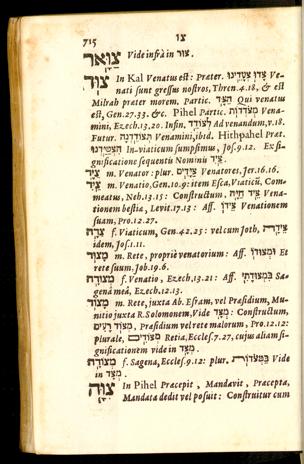 715 צו
צַוָּאר Vide infrà in צור.
צוּד In Kal Venatus est: Præter. צָדוּ צְעָדֵינוּ Ve-
nati sunt gressus nostros, Thren.4.18, & est
Milrah præter morem. Partic. הַצָּד Qui venatus
est, Gen.27.33. &c. Pihel Partic. מְצֹדְדוֹת Vena-
mini, Ezech.13.20. Infin. לְצוֹדֵד Ad venandum, v.18.
Futur. תְּצוֹדֵדְנָה Venamini, ibid. Hithpahel Præt.
הִצְטַיַּדְנוּ In-viaticum sumpsimus, Jos.9.12. Ex si-
gnificatione sequentis Nominis צַיִד.
צַיָּד m. Venator: plur. צַיָּדִים Venatores, Jer.16.16.
צַיִד m. Venatio, Gen.10.9: item Esca, Viaticũ, Com-
meatus, Neh.13.15: Constructum, צֵיד חַיָּה Vena-
tionem bestiæ, Levit.17.13: Aff. צֵידוֹ Venationem
suam, Pro.12.27.
צֵדָה f. Viaticum, Gen.42.25: vel cum Joth, צֵידָה
idem, Jos.1.11.
מָצוֹד m. Rete, propriè venatorium: Aff. וּמְצוּדוֹ Et
rete suum. Job.19.6.
מְצוּדָה f. Venatio, Ezech.13.21: Aff. בִּמְצוּדָתִי Sa-
genâ meâ, Ezech.12.13.
מָצוֹד m. Rete, juxta Ab. Esram, vel Præsidium, Mu-
nitio juxta R. Solomonem, Vide מְצָד: Constructum,
מְצוֹד רָעִים, Præsidium vel rete malorum, Pro.12.12:
plurale, מְצוֹדִים Retia, Eccles.7.27, cujus aliam si-
gnificationem vide in מְצָד.
מְצוֹדָה f. Sagena, Eccles.9.12: plur. בַּמְּצֹדוֹת Vide
in מְצָד.
צִוָּה In Pihel Præcepit, Mandavit, Præcepta,
Mandata dedit vel posuit: Construitur cum